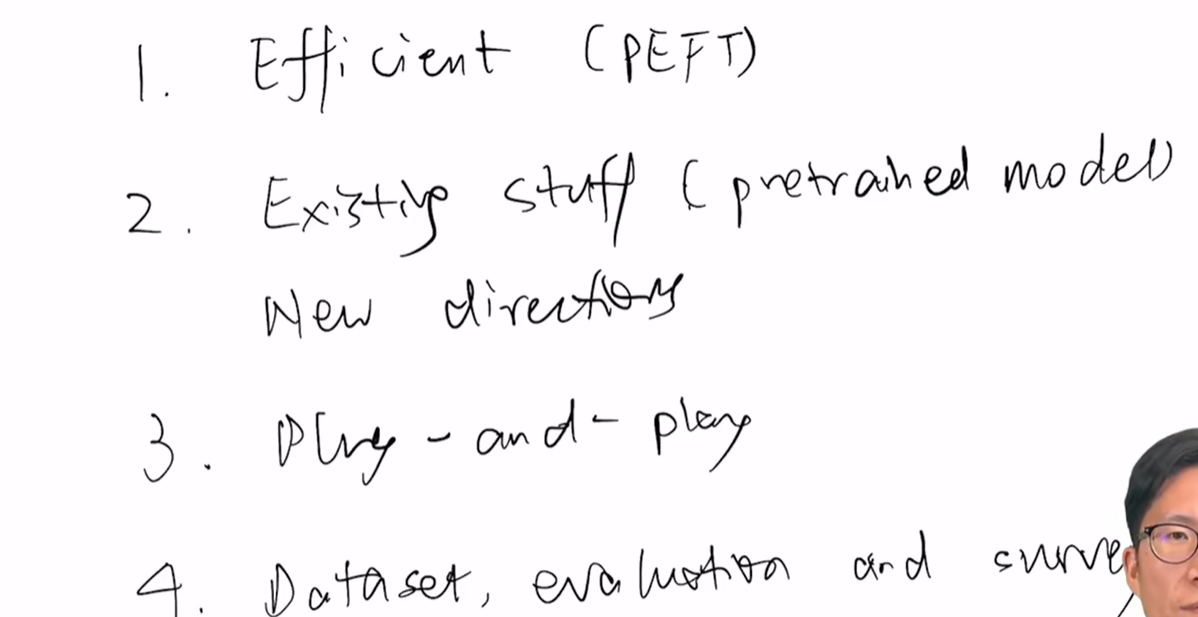 1. Efficient (PEFT)
2. Existing stuff (pretrained model)
New directions
3. Plug-and-play
4. Dataset, evaluation and survey